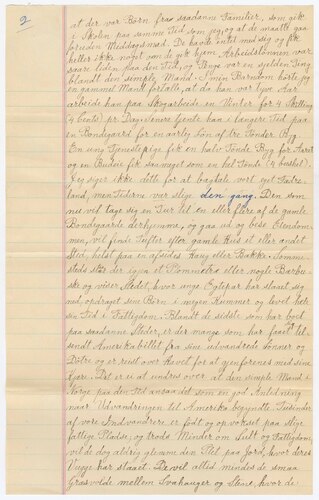 2
at der var Børn fra saadanne Familier, som gik
i Skolen paa samme Tid som jeg, og at de maatte gaa
foruden Middagsmad. De havde intet med sig og fik
heller ikke noget som de gik hjem. Arbeidslønnen var
saare liden paa den Tid, og Penge var en sjelden Ting
blandt den simple Mand. I min Barndom hørte jeg
en gammel Mand fortalte, at da han var tyve Aar
arbeide han paa Skogarbeide en Vinter for 4 Skilling
(4 cents) pr Dag. Senere tjente han i længere Tid paa
en Bondegaard for en aarlig Løn af tre Tønder Byg.
En ung Tjenestepige fik en halv Tønde Byg for Aaret
og en Budeie fik saameget som en hel Tønde (4 bushel).
Jeg siger ikke dette for at bagtale vort eget Fædre-
land, men Tiderne var slige den gang. Den som
nu vil tage sig en Tur til en eller flere af de gamle
Bondegaarde derhjemme, og gaa ud og bese Eiendom-
men, vil finde Tufter efter gamle Hus et eller andet
Sted, helst paa en afsides Haug eller Bakke. Somme-
steds står der igjen et Plommetræ eller nogle Barbu-
ske og viser Stedet, hvor ange Egtepar har slaaet sig
ned opdraget sine Børn i megen Kummer og levet hele
sin Tid i Fattigdom. Blandt de sidste som har bod
paa saadanne Steder, er der mange som har faaet til-
sendt Amerikabillet fra sine udvandrede Sønner og
Døtre og er reist over Havet for at gjenforenes med sine
Kjære. Det er ei at undres over at den simple Mand i
Norge paa den Tid ansaa det som en god Anledning
naar Udvandringen til Amerika begyndte. Tusinder
af vore Indvandrere er født og opvokset paa slige
fattige Pladse, og trods Minder om Sult og Fattigdom,
vil de dog aldrig glemme den Plet paa Jord, hvor deres
Vugge har staaet. De vil altid mindes de smaa
Græsvolde mellem Svabauger og Stene, hvor de